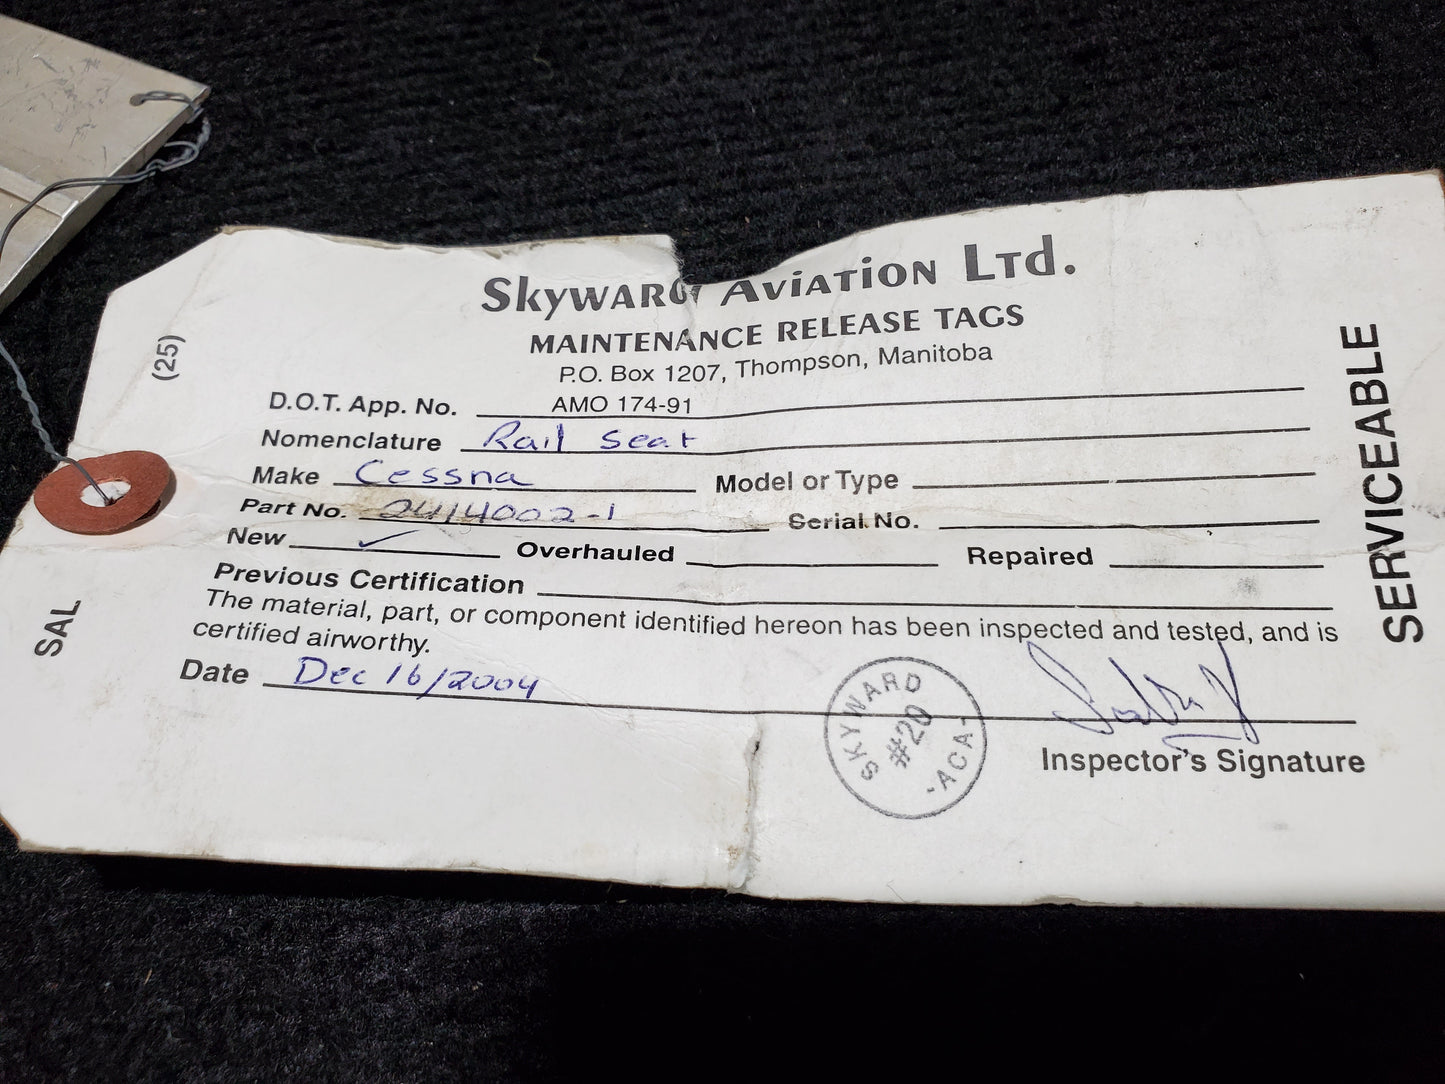 Skyward Aviation Ltd.
MAINTENANCE RELEASE TAGS
P.O. Box 1207, Thompson, Manitoba
(25)
D.O.T. App. No. AMO 174-91
Nomenclature Rail Seat
Make Cessna Model or Type
Part No. 2414002-1 Serial No.
New ✓ Overhauled Repaired
Previous Certification
The material, part, or component identified hereon has been inspected and tested, and is
certified airworthy.
Date Dec 16/2004
SKYWARD #20 -ACA-
Inspector's Signature
SAL
SERVICEABLE